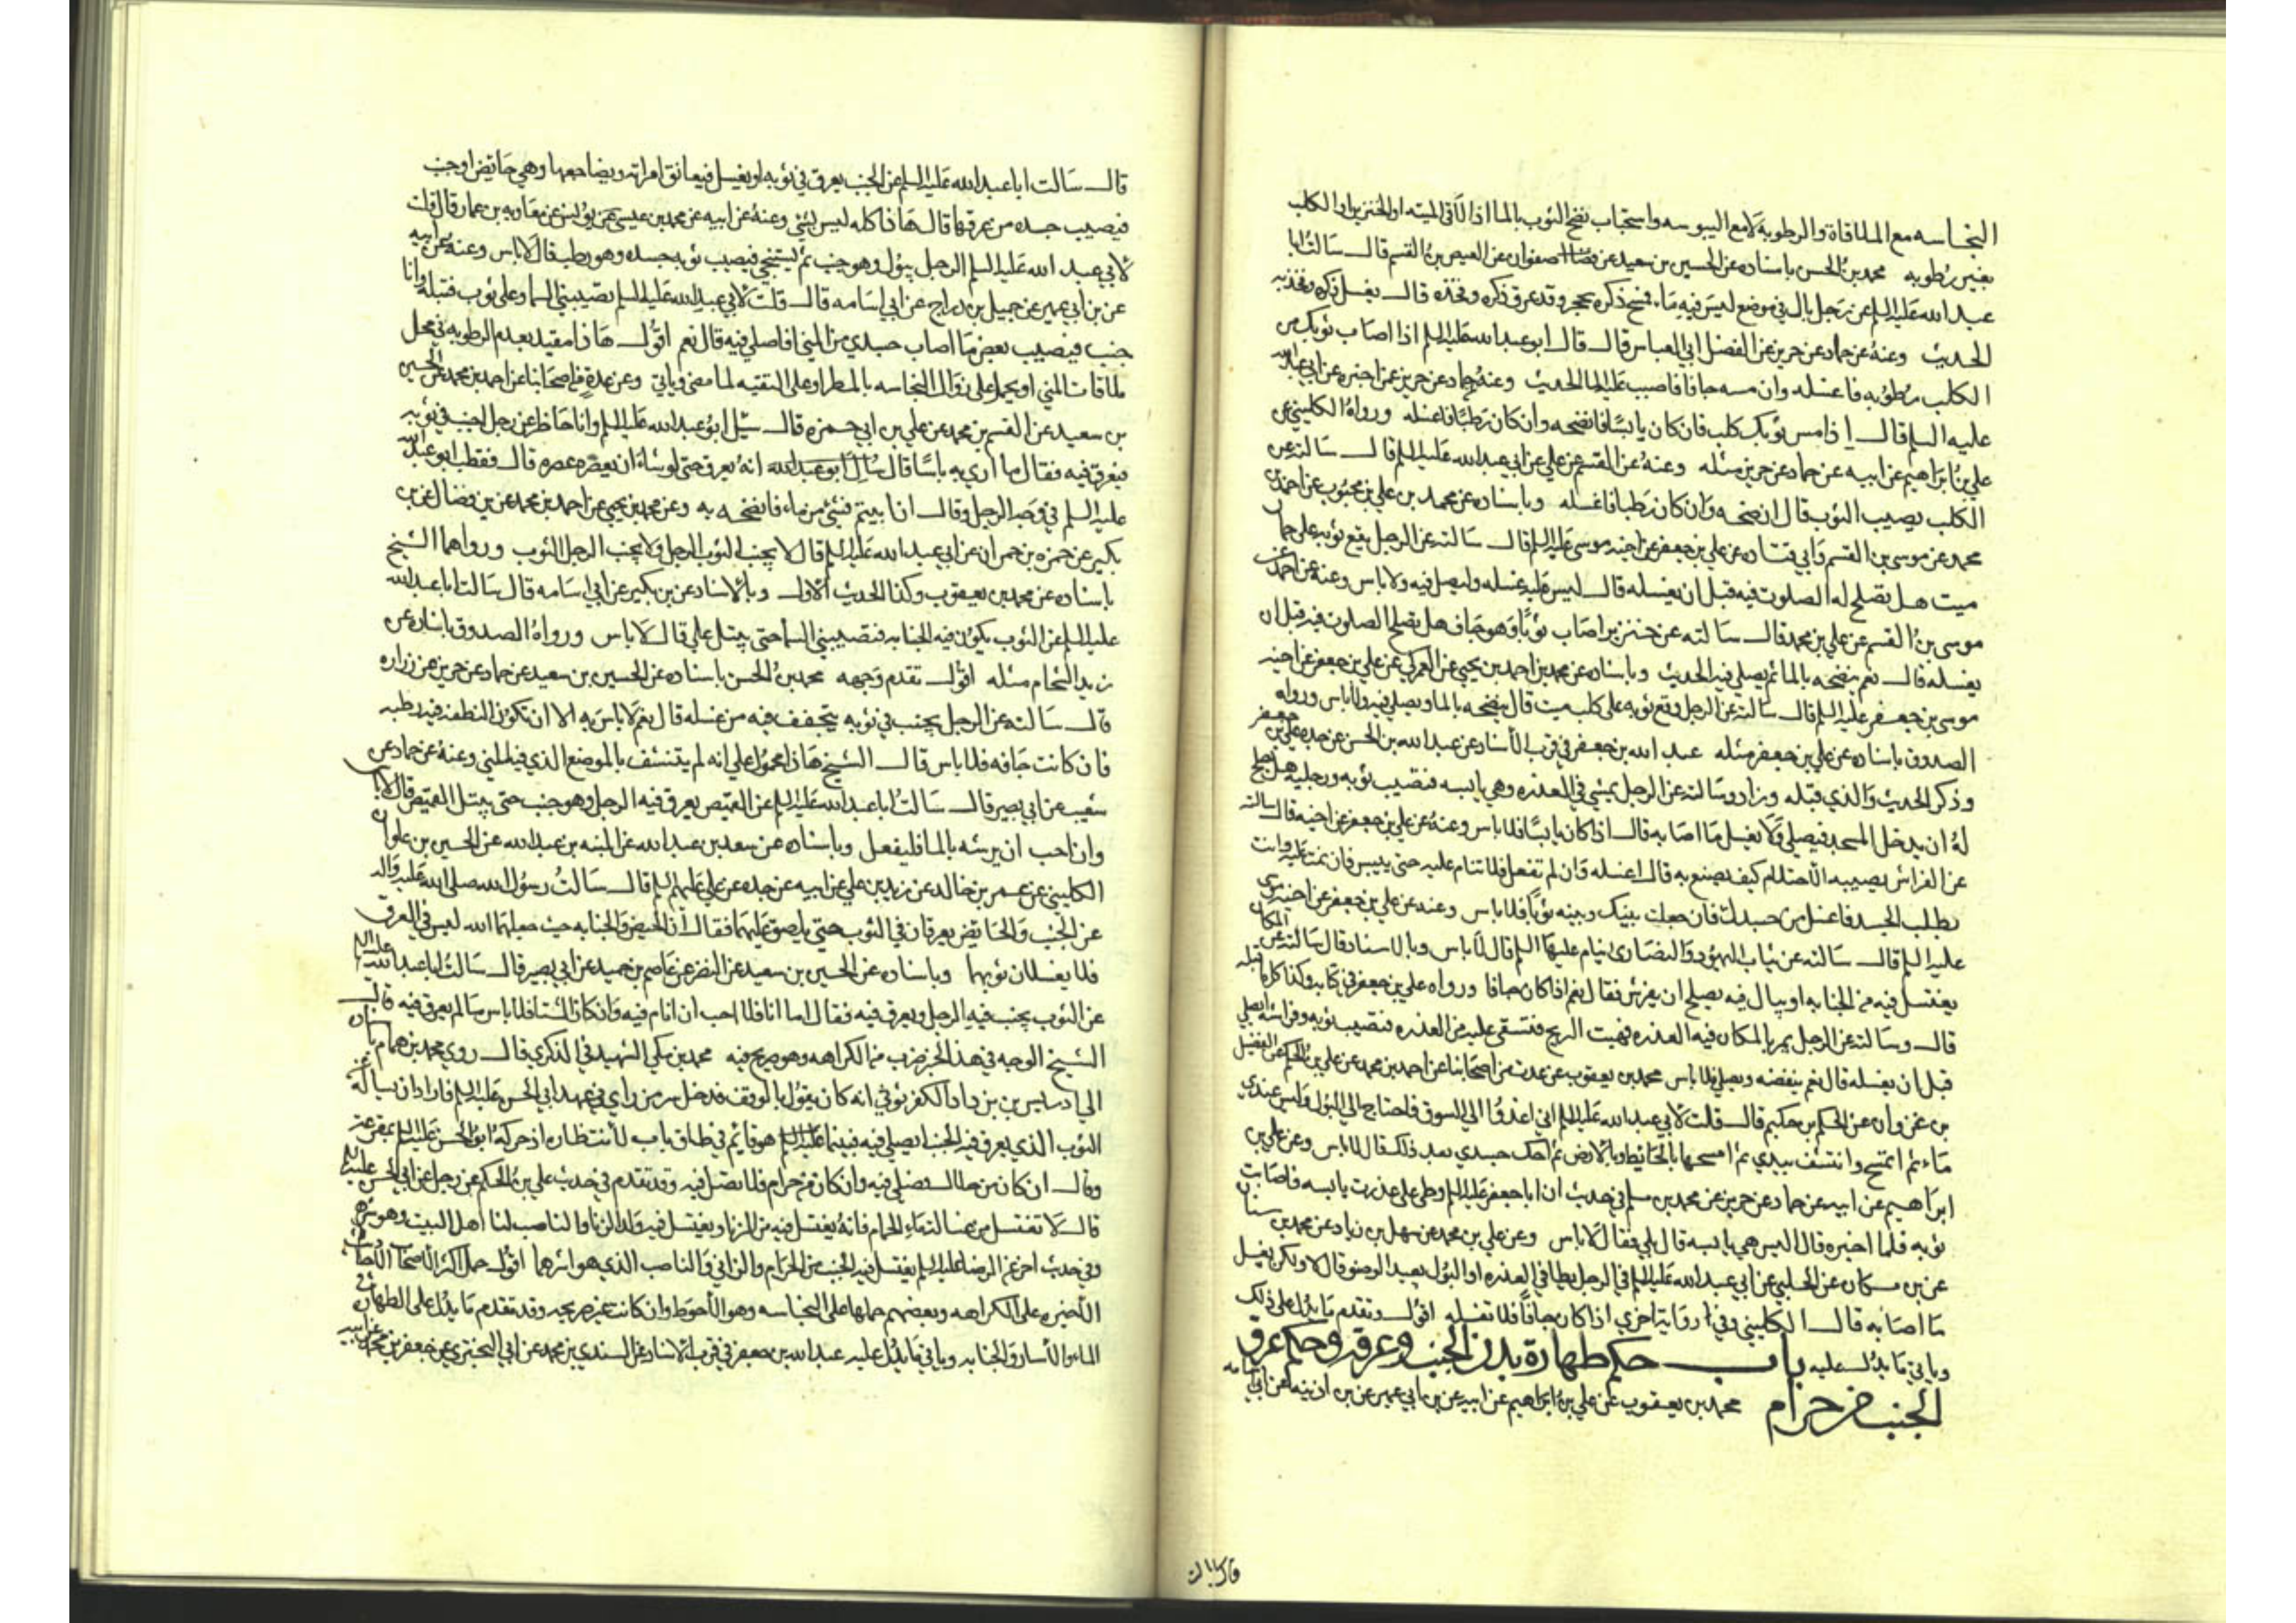 النجاسه مع الملاقاة والرطوبه لا مع اليبوسه واستحباب نضح الثوب بالما اذا لاقى الميته او الخنزير او الكلب
بغير رطوبه محمد بن الحسن باسناده عن الحسين بن سعيد عن صفوان عن العيص بن القسم قال سالت ابا
عبد الله عليه السلم عن رجل بال في موضع ليس فيه ماء فمسح ذكره بحجر وقد عرق ذكره وفخذه قال يغسل ذكره وفخذيه
الحديث وعنه عن حماد عن حريز عن الفضل ابي العباس قال قال ابو عبد الله عليه السلم اذا اصاب ثوبك من
الكلب رطوبه فاغسله وان مسه جافا فاصبب عليه الما الحديث وعنه عن حماد عن حريز عمن اخبره عن ابي عبد الله
عليه السلم قال اذا مس ثوبك كلب فان كان يابسا فانضحه وان كان رطبا فاغسله ورواه الكليني عن
علي بن ابراهيم عن ابيه عن حماد عن حريز مثله وعنه عن القسم عن علي عن ابي عبد الله عليه السلم قال سالته عن
الكلب يصيب الثوب قال انضحه وان كان رطبا فاغسله وباسناده عن محمد بن علي بن محبوب عن احمد بن
محمد عن موسى بن القسم وابي قتاده عن علي بن جعفر عن اخيه موسى عليه السلم قال سالته عن الرجل يقع ثوبه على حمار
ميت هل تصلح له الصلوت فيه قبل ان يغسله قال ليس عليه غسله وليصل فيه ولا باس وعنه عن احمد عن
موسى بن القسم عن علي بن محمد قال سالته عن خنزير اصاب ثوبا وهو جاف هل تصلح الصلوت فيه قبل ان
يغسله قال نعم ينضحه بالما ثم يصلي فيه الحديث وباسناده عن محمد بن احمد بن يحيى عن العمركي عن علي بن جعفر عن اخيه
موسى بن جعفر عليه السلم قال سالته عن الرجل وقع ثوبه على كلب ميت قال ينضحه بالما ويصلي فيه ولا باس ورواه
الصدوق باسناده عن علي بن جعفر مثله عبد الله بن جعفر في قرب الاسناد عن عبد الله بن الحسن عن جده علي بن جعفر
وذكر الحديث والذي قبله وزاد وسالته عن الرجل يمشي في العذره وهي يابسه فتصيب ثوبه ورجليه هل يصلح
له ان يدخل المسجد فيصلي ولا يغسل ما اصابه قال اذا كان يابسا فلا باس وعنه عن علي بن جعفر عن اخيه قال سالته
عن الفراش يصيبه الاحتلام كيف يصنع به قال اغسله وان لم تفعل فلا تنام عليه حتى ييبس فان نمت عليه وانت
رطب الجسد فاغسل من جسدك فان جعلت بينك وبينه ثوبا فلا باس وعنه عن علي بن جعفر عن اخيه موسى
عليه السلم قال سالته عن ثياب اليهود والنصارى ينام عليها السلم قال لا باس وبالاسناد قال سالته عن المكان
يغتسل فيه من الجنابه او يبال فيه يصلح ان يفرش فقال نعم اذا كان جافا ورواه علي بن جعفر في كتابه وكذا كل ما قبله
قال وسالته عن الرجل يمر بالمكان فيه العذره فهبت الريح فتسقى عليه من العذره فتصيب ثوبه وراسه ايصلي
قبل ان يغسله قال نعم ينفضه ويصلي فلا باس محمد بن يعقوب عن عدت من اصحابنا عن احمد بن محمد عن علي بن الحكم عن الفضيل
بن غزوان عن الحكم بن حكيم قال قلت لابي عبد الله عليه السلم اني اغدوا الى السوق فاحتاج الى البول وليس عندي
ماء ثم اتمسح وانتشف بيدي ثم امسحها بالحايط وبالارض ثم احك جسدي بعد ذلك قال لا باس وعن علي بن
ابراهيم عن ابيه عن حماد عن حريز عن محمد بن مسلم في حديث ان ابا جعفر عليه السلم وطى على عذرت يابسه فاصابت
ثوبه فلما اخبره قال اليس هي يابسه قال بلى فقال لا باس وعن علي بن محمد عن سهل بن زياد عن محمد بن سنان
عن بن مسكان عن الحلبي عن ابي عبد الله عليه السلم في الرجل يطا في العذره او البول يعيد الوضو قال لا ولكن يغسل
ما اصابه قال الكليني وفي روايت اخرى اذا كان جافا فلا تغسله اقول وتقدم ما يدل على ذلك
وياتي ما يدل عليه باب حكم طهارة بدن الجنب وعرقه وحكم عرق
الجنب من حرام محمد بن يعقوب عن علي بن ابراهيم عن ابيه عن بن ابي عمير عن بن اذينه عن ابي اسامه
قال سالت ابا عبد الله عليه السلم عن الجنب يعرق في ثوبه او يغسل فيعانق امراته ويضاجعها وهي حايض او جنب
فيصيب جسده من عرقها قال هاذا كله ليس بشي وعنه عن ابيه عن محمد بن عيسى عن يونس عن معاويه بن عمار قال قلت
لابي عبد الله عليه السلم الرجل يبول وهو جنب ثم يستنجي فيصيب ثوبه جسده وهو رطب قال لا باس وعنه عن ابيه
عن بن ابي عمير عن جميل بن دراج عن ابي اسامه قال قلت لابي عبد الله عليه السلم تصيبني السما وعلي ثوب فتبله وانا
جنب فيصيب بعض ما اصاب جسدي من المني افاصلي فيه قال نعم اقول هاذا مقيد بعدم الرطوبه في محل
ملاقات المني او يحمل على زوال النجاسه بالمطر او على التقيه لما مضى وياتي وعن عدة من اصحابنا عن احمد بن محمد عن الحسين
بن سعيد عن القسم بن محمد عن علي بن ابي حمزه قال سئل ابو عبد الله عليه السلم وانا حاظر عن رجل اجنب في ثوبه
فيعرق فيه فقال ما ارى به باسا قال انه يعرق حتى لو شاء ان يعصره عصره قال فقطب ابو عبد الله
عليه السلم في وجه الرجل وقال ان ابيتم فشئ من ماء فانضحه به وعن محمد بن يحيى عن احمد بن محمد عن بن فضال عن بن
بكير عن حمزه بن حمران عن ابي عبد الله عليه السلم قال لا يجنب الثوب الرجل ولا يجنب الرجل الثوب ورواهما الشيخ
باسناده عن محمد بن يعقوب وكذا الحديث الاول وبالاسناد عن بن بكير عن ابي اسامه قال سالت ابا عبد الله
عليه السلم عن الثوب يكون فيه الجنابه فتصيبني السما حتى يبتل علي قال لا باس ورواه الصدوق باسناده عن
زيد الشحام مثله اقول تقدم وجهه محمد بن الحسن باسناده عن الحسين بن سعيد عن حماد عن حريز عن زراره
قال سالته عن الرجل يجنب في ثوبه يتجفف فيه من غسله قال نعم لا باس به الا ان تكون النطفه فيه رطبه
فان كانت جافه فلا باس قال الشيخ هاذا محمول على انه لم يتنشف بالموضع الذي فيه المني وعنه عن حماد عن
شعيب عن ابي بصير قال سالت ابا عبد الله عليه السلم عن القميص يعرق فيه الرجل وهو جنب حتى يبتل القميص قال لا باس
وان احب ان يرشه بالما فليفعل وباسناده عن سعد بن عبد الله عن المنبه بن عبد الله عن الحسين بن علوان
الكليني عن عمر بن خالد عن زيد بن علي عن ابيه عن جده عن علي عليهم السلم قال سالت رسول الله صلى الله عليه واله
عن الجنب والحايض يعرقان في الثوب حتى يلصق عليهما فقال ان الحيض والجنابه حيث جعلهما الله ليس في العرق
فلا يغسلان ثوبهما وباسناده عن الحسين بن سعيد عن النضر عن عاصم بن حميد عن ابي بصير قال سالت ابا عبد الله عليه السلم
عن الثوب يجنب فيه الرجل ويعرق فيه فقال اما انا فلا احب ان انام فيه وان كان الشتا فلا باس ما لم يعرق فيه قال
الشيخ الوجه في هذا الخبر ضرب من الكراهه وهو صريح فيه محمد بن مكي الشهيد في الذكرى قال روى محمد بن همام باسناده
الى ادريس بن بن داد الكفرثوثي انه كان يقول بالوقف فدخل سر من راي في عهد ابي الحسن عليه السلم فاراد ان يساله عن
الثوب الذي يعرق فيه الجنب ايصلي فيه فبينما هو قائم في طاق باب لانتظاره اذ حركه ابو الحسن عليه السلم بمقرعته
وقال ان كان من حلال فصلي فيه وان كان من حرام فلا تصل فيه وقد تقدم في حديث علي بن الحكم عن رجل عن ابي الحسن عليه السلم
قال لا تغتسل من غسالت ماء الحمام فانه يغتسل فيه من الزنا ويغتسل فيه ولد الزنا والناصب لنا اهل البيت وهو شرهم
وفي حديث اخر عن الرضا عليه السلم يغتسل فيه الجنب من الحرام والزاني والناصب الذي هو اشرهما اقول حمل اكثر الاصحاب الاحاديث
الاخيره على الكراهه وبعضهم حملها على النجاسه وهو الاحوط وان كانت غير صريحه وقد تقدم ما يدل على الطهاره في
الماء والاسار والجنابه وياتي ما يدل عليه عبد الله بن جعفر في قرب الاسناد عن السندي بن محمد عن ابي البختري عن جعفر بن محمد عن ابيه